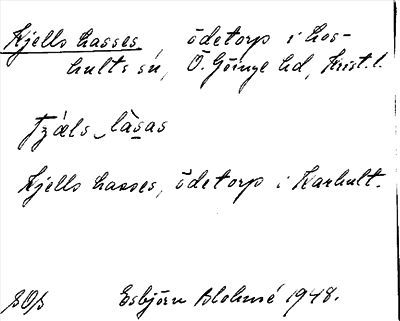 Kjells Lasses ödetorp i Los-
hults sn, Ö. Göinge hd, Krist. l.
Kjells Lasses, ödetorp i Karhult.
SOS Esbjörn Blohmé 1948.